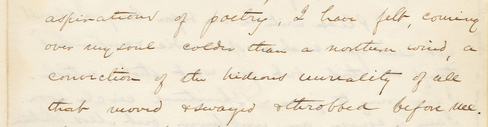 aspirations of poetry, I have felt, coming
over my soul colder than a northern wind, a
conviction of the hideous unreality of all
that moved & swayed & throbbed before me.